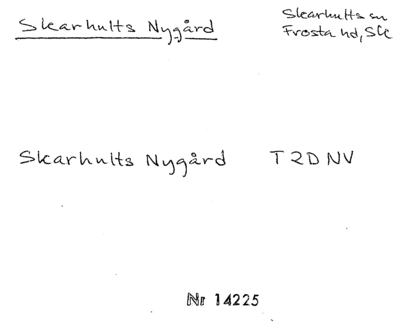 Skarhults Nygård
Skarhults sn
Frosta hd, Sk
Skarhults Nygård T2D NV
Nr 14225